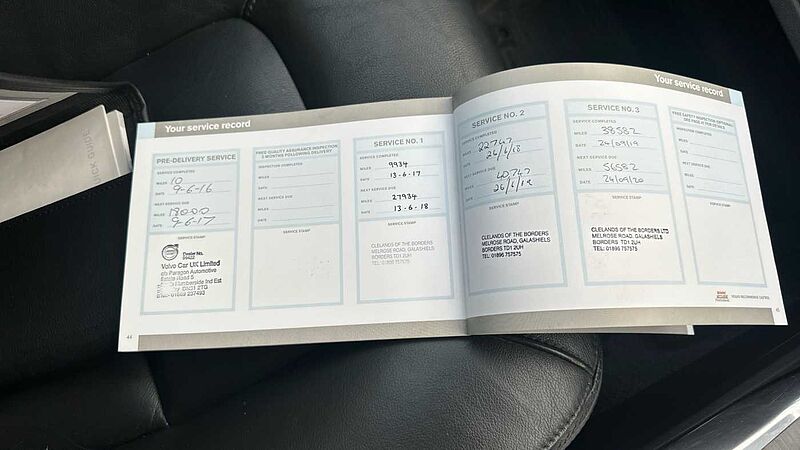 Your service record
PRE-DELIVERY SERVICE
SERVICE COMPLETED
MILES 10
DATE 9-6-16
NEXT SERVICE DUE
MILES 18000
DATE 9-6-17
SERVICE STAMP
VOLVO
Dealer No.
Volvo Car UK Limited
c/o Paragon Automotive
Estate Road 5
Humberside Ind Est
DN31 2TG
44
FREE QUALITY ASSURANCE INSPECTION
3 MONTHS FOLLOWING DELIVERY
INSPECTION COMPLETED
MILES
DATE
NEXT SERVICE DUE
MILES
DATE
SERVICE STAMP
SERVICE NO. 1
SERVICE COMPLETED
MILES 9934
DATE 13-6-17
NEXT SERVICE DUE
MILES 27934
DATE 13-6-18
SERVICE STAMP
CLELANDS OF THE BORDERS
MELROSE ROAD, GALASHIELS
BORDERS TD1 2UH
TEL: 01896 757575
Your service record
SERVICE NO. 2
SERVICE COMPLETED
MILES 22747
DATE 26/6/18
NEXT SERVICE DUE
MILES 40747
DATE
SERVICE STAMP
CLELANDS OF THE BORDERS
MELROSE ROAD, GALASHIELS
BORDERS TD1 2UH
TEL: 01896 757575
SERVICE NO. 3
SERVICE COMPLETED
MILES 38582
DATE 24/09/19
NEXT SERVICE DUE
MILES 56582
DATE 24/09/20
SERVICE STAMP
CLELANDS OF THE BORDERS LTD
MELROSE ROAD, GALASHIELS
BORDERS TD1 2UH
TEL: 01896 757575
FREE SAFETY INSPECTION (OPTIONAL)
INSPECTION COMPLETED
MILES
DATE
NEXT SERVICE DUE
MILES
DATE
SERVICE STAMP
VOLVO RECOMMENDS CASTROL
45
CK GUIDE